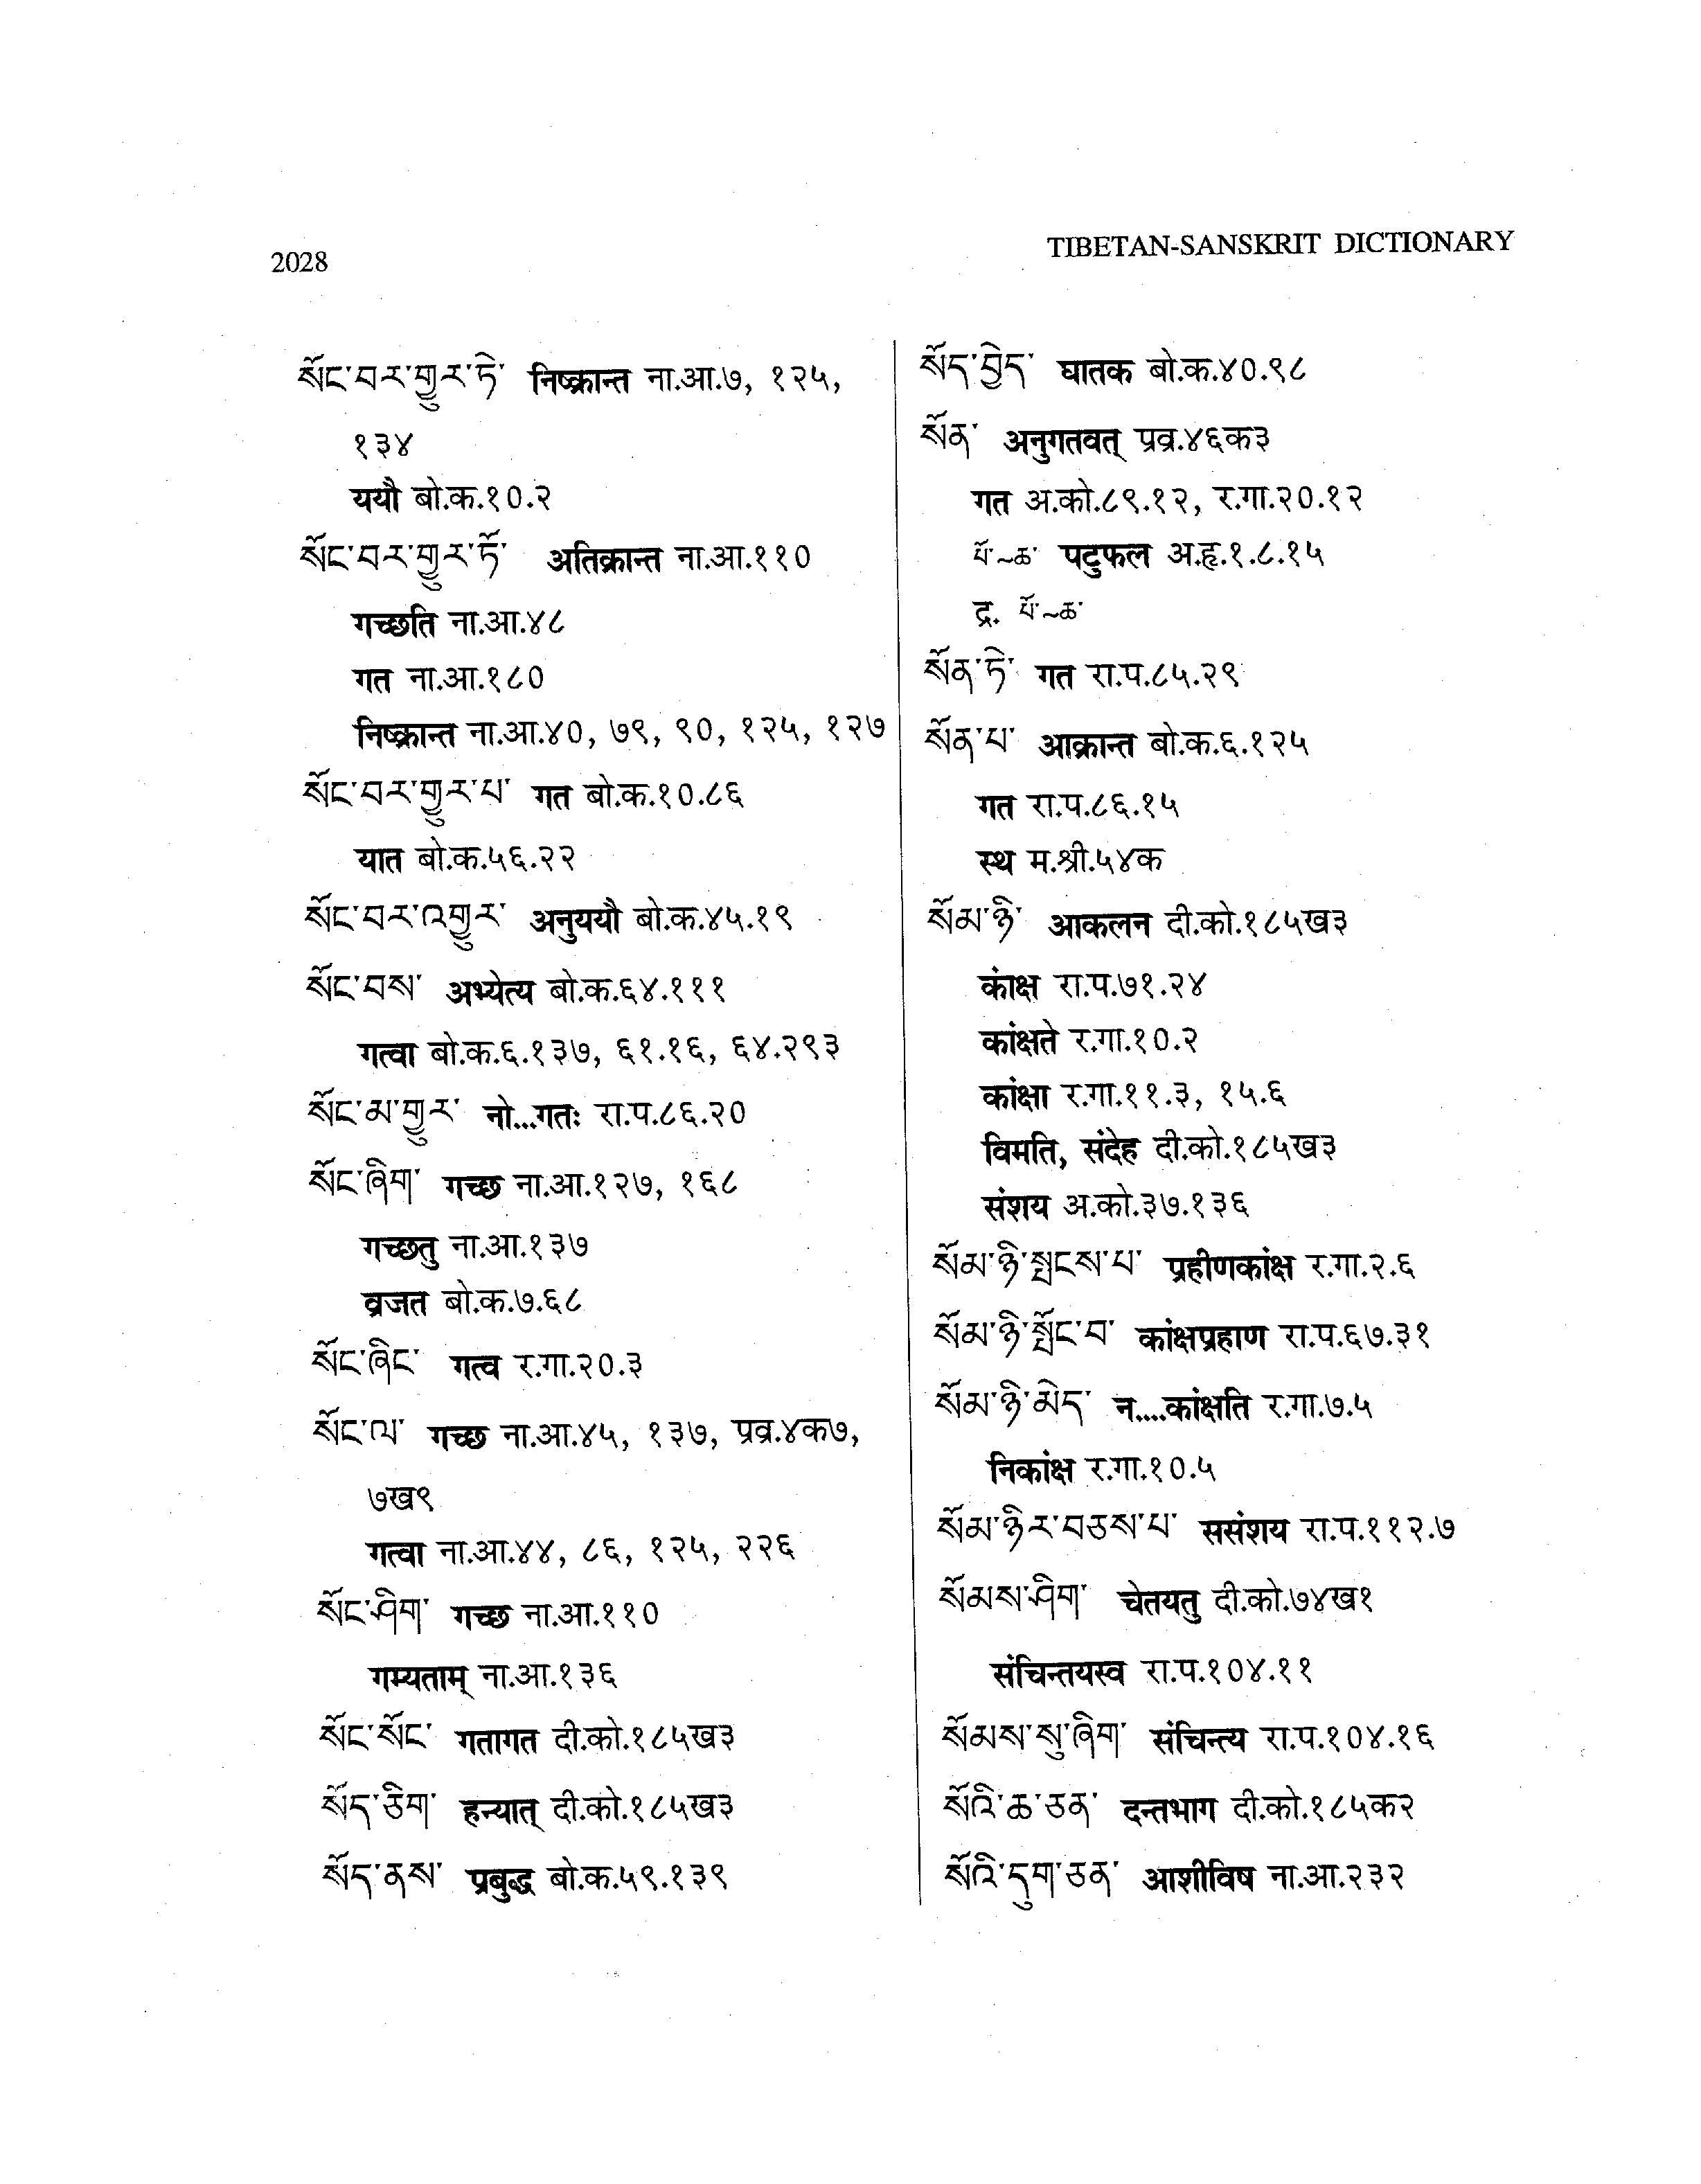 2028
TIBETAN-SANSKRIT DICTIONARY
སོང་བར་གྱུར་ཏེ་ निष्क्रान्त ना.आ.७, १२५,
१३४
ययौ बो.क.१०.२
སོང་བར་གྱུར་ཏོ་ अतिक्रान्त ना.आ.११०
गच्छति ना.आ.४८
गत ना.आ.१८०
निष्क्रान्त ना.आ.४०, ७९, ९०, १२५, १२७
སོང་བར་གྱུར་པ་ गत बो.क.१०.८६
यात बो.क.५६.२२
སོང་བར་འགྱུར་ अनुययौ बो.क.४५.१९
སོང་བས་ अभ्येत्य बो.क.६४.१११
गत्वा बो.क.६.१३७, ६१.१६, ६४.२९३
སོང་མ་གྱུར་ नो...गतः रा.प.८६.२०
སོང་ཞིག་ गच्छ ना.आ.१२७, १६८
गच्छतु ना.आ.१३७
व्रजत बो.क.७.६८
སོང་ཞིང་ गत्व र.गा.२०.३
སོང་ལ་ गच्छ ना.आ.४५, १३७, प्रव्र.४क७,
७ख९
गत्वा ना.आ.४४, ८६, १२५, २२६
སོང་ཤིག་ गच्छ ना.आ.११०
गम्यताम् ना.आ.१३६
སོང་སོང་ गतागत दी.को.१८५ख३
སོད་ཅིག་ हन्यात् दी.को.१८५ख३
སོད་ནས་ प्रबुद्ध बो.क.५९.१३९
སོད་བྱེད་ घातक बो.क.४०.९८
སོན་ अनुगतवत् प्रव्र.४६क३
गत अ.को.८९.१२, र.गा.२०.१२
པོ་~ཆ་ पटुफल अ.हृ.१.८.१५
द्र. པོ་~ཆ་
སོན་ཏེ་ गत रा.प.८५.२९
སོན་པ་ आक्रान्त बो.क.६.१२५
गत रा.प.८६.१५
स्थ म.श्री.५४क
སོམ་ཉི་ आकलन दी.को.१८५ख३
कांक्ष रा.प.७१.२४
कांक्षते र.गा.१०.२
कांक्षा र.गा.११.३, १५.६
विमति, संदेह दी.को.१८५ख३
संशय अ.को.३७.१३६
སོམ་ཉི་སྤངས་པ་ प्रहीणकांक्ष र.गा.२.६
སོམ་ཉི་སྤོང་བ་ कांक्षप्रहाण रा.प.६७.३१
སོམ་ཉི་མེད་ न....कांक्षति र.गा.७.५
निकांक्ष र.गा.१०.५
སོམ་ཉིར་བཅས་པ་ ससंशय रा.प.११२.७
སོམས་ཤིག་ चेतयतु दी.को.७४ख१
संचिन्तयस्व रा.प.१०४.११
སོམས་སུ་ཞིག་ संचिन्त्य रा.प.१०४.१६
སོའི་ཆ་ཅན་ दन्तभाग दी.को.१८५क२
སོའི་དུག་ཅན་ आशीविष ना.आ.२३२